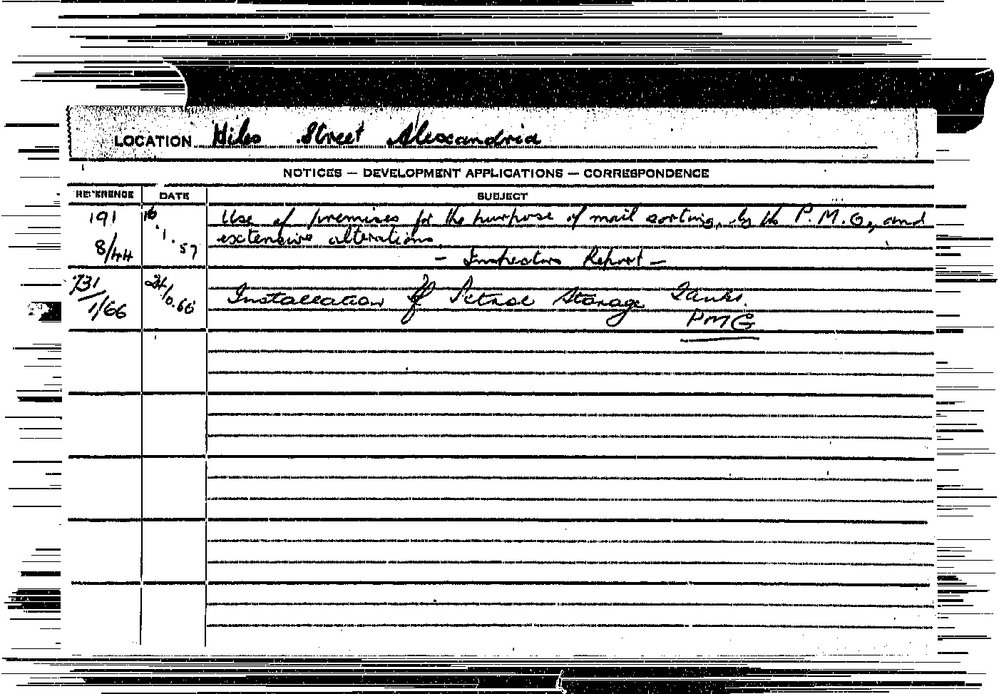 LOCATION Hiles Street Alexandria
NOTICES — DEVELOPMENT APPLICATIONS — CORRESPONDENCE
REFERENCE DATE SUBJECT
191 16 Use of premises for the purpose of mail sorting, by the P.M.G, and
8/44 .1.57 extensive alterations.
— Inspectors Report —
731 Installation of Petrol Storage Tanks.
1/66 PMG